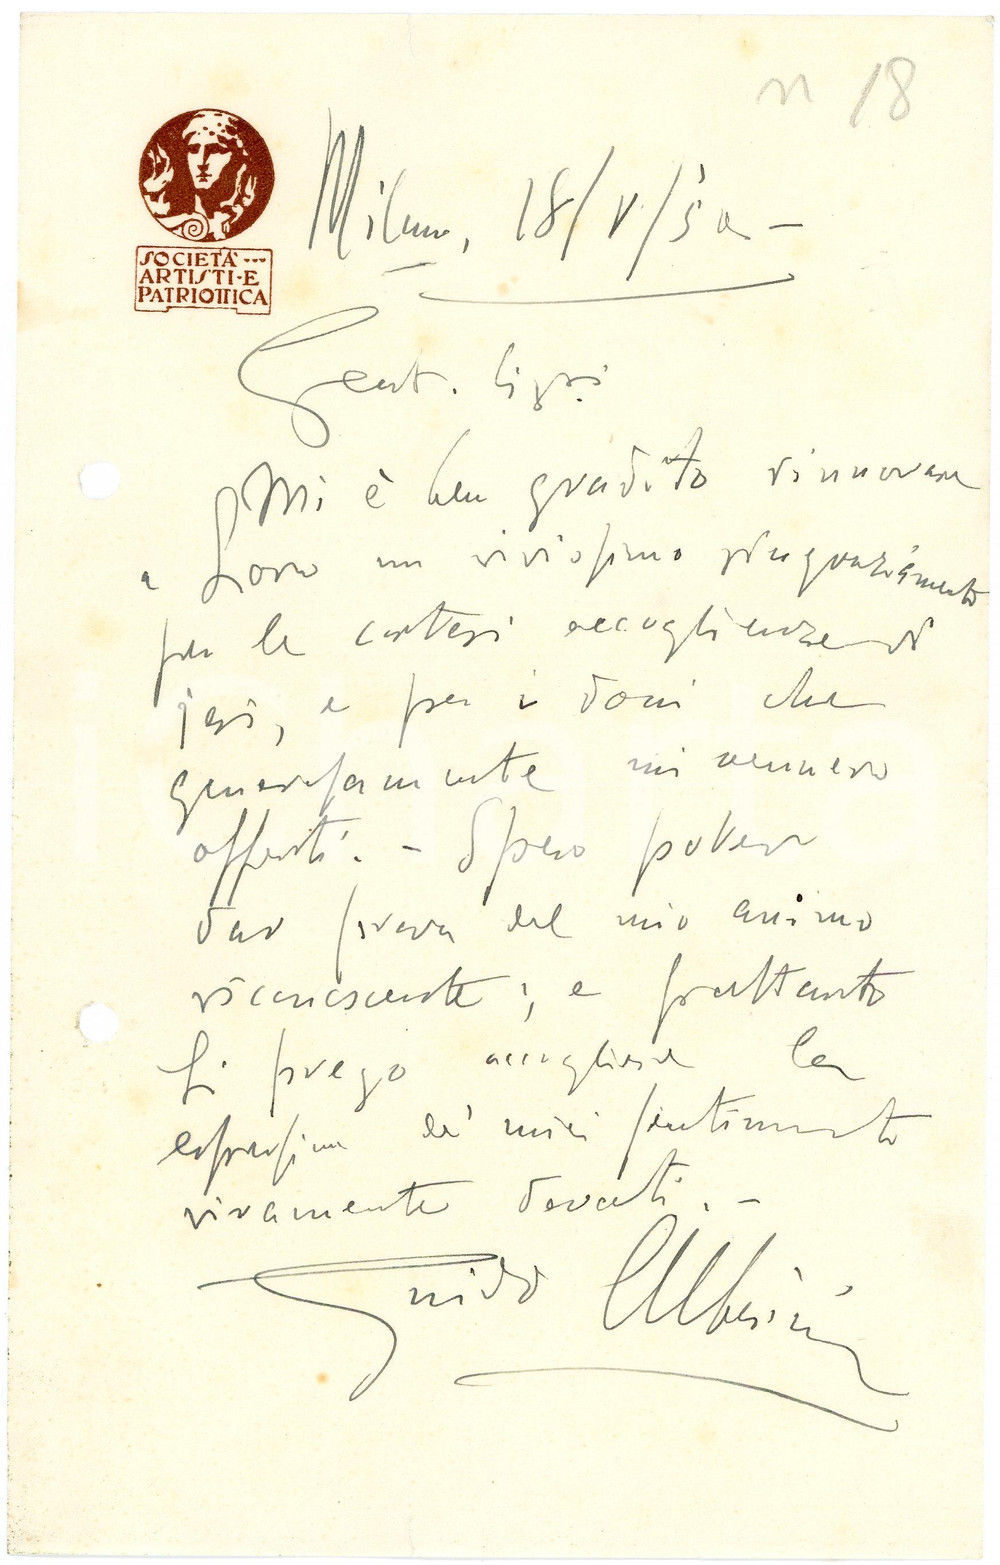 n 18
SOCIETÀ
ARTISTI·E
PATRIOTTICA
Milano, 18/V/50 -
Gent. Sigri
Mi è ben gradito rinnovare
a Loro un vivissimo ringraziamento
per le cortesi accoglienze di
jeri, e per i doni che
generosamente mi vennero
offerti. - Spero poter
dar prova del mio animo
riconoscente; e frattanto
Li prego accogliere la
espressione de' miei sentimenti
vivamente devoti. -
Guido Albe